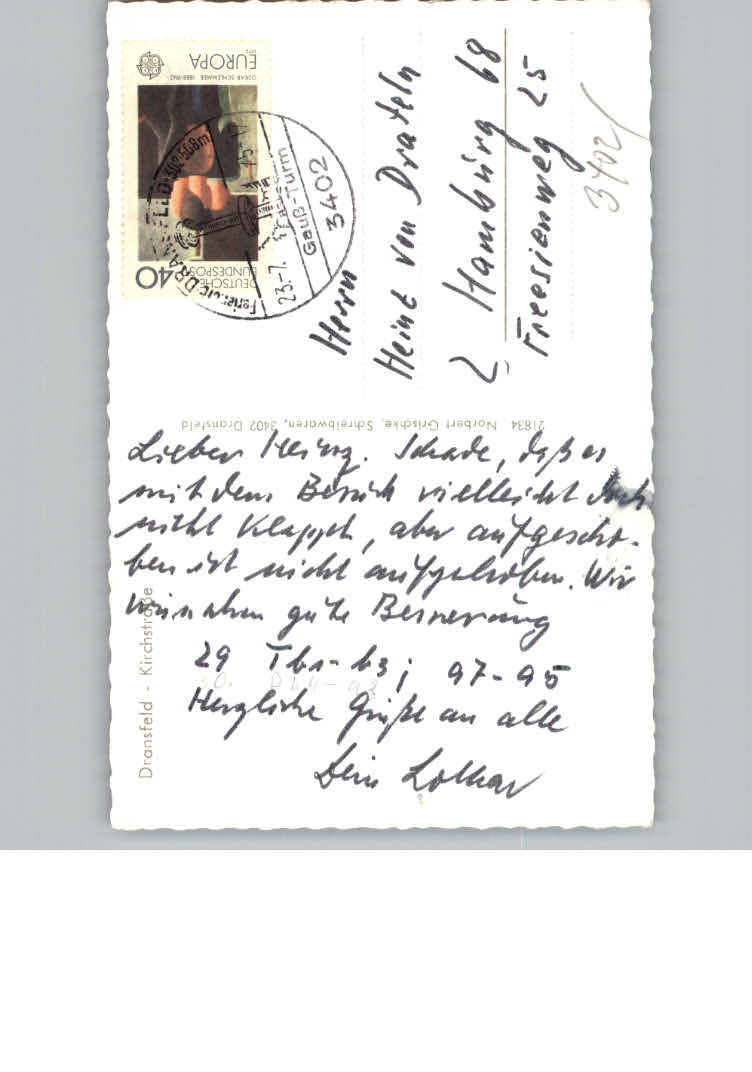 EUROPA
OSKAR SCHLEMMER 1888-1943
DEUTSCHE
BUNDESPOST
40
Gauß-Turm
3402
23.-7.
Herrn
Heinz von Drateln
2 Hamburg 68
Freesienweg 25
3402
21834 Norbert Grischke, Schreibwaren, 3402 Dransfeld
Dransfeld - Kirchstraße
Lieber Heinz. Schade, daß es
mit dem Besuch vielleicht doch
nicht klappt, aber aufgescho-
ben ist nicht aufgehoben. Wir
wünschen gute Besserung
29 Tb5-b3; 97-95
Herzliche Grüße an alle
Dein Lothar